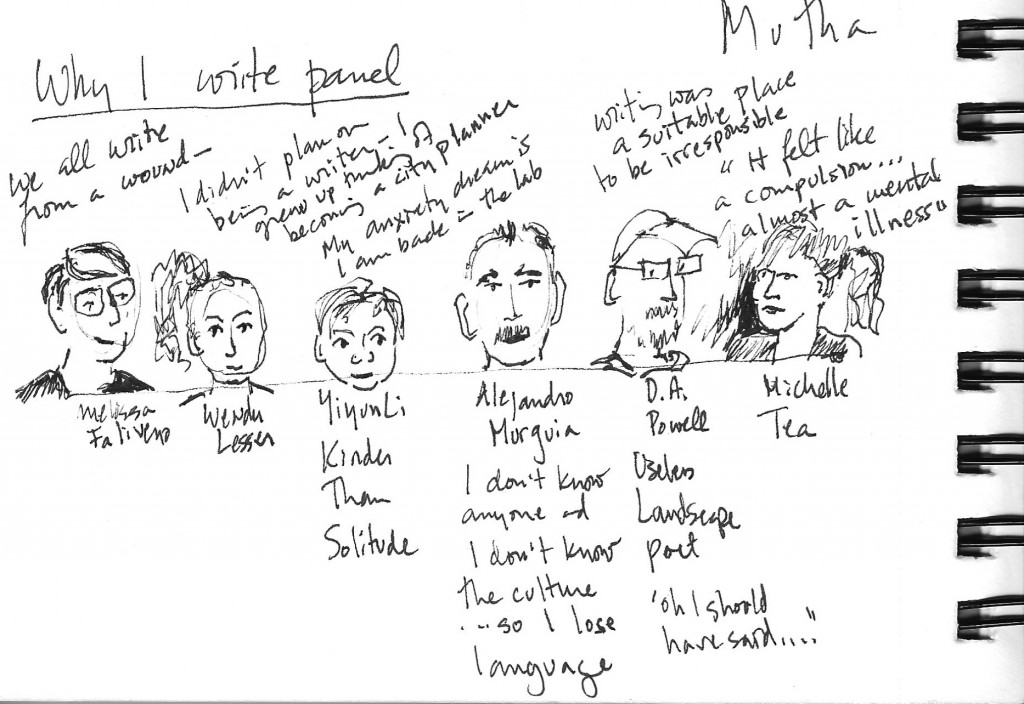 Mutha
Why I write panel
We all write
from a wound—
I didn't plan on
being a writer— I
grew up thinking of
becoming a city planner
My anxiety dream is
I am back in the lab
writing was
a suitable place
to be irresponsible
"It felt like
a compulsion...
almost a mental
illness"
Melissa
Faliveno
Wendy
Lesser
Yiyun Li
Kinder
Than
Solitude
Alejandro
Murguia
I don't know
anyone and
I don't know
the culture
...so I lose
language
D.A.
Powell
Useless
Landscape
poet
"oh I should
have said...."
Michelle
Tea